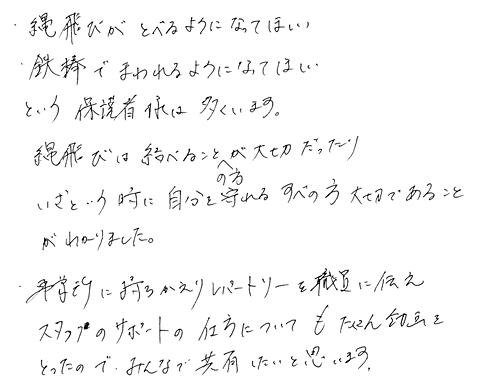 ・縄飛びがとべるようになってほしい
・鉄棒でまわれるようになってほしい
という保護者様は多くいます。
縄飛びは
ことが大切だったり
の方
いざという時に自分を守れるすべの方大切であること
がわかりました。
に持ちかえりレパートリーを職員に伝え
スタッフのサポートの仕方についてもたくさん動画を
とったので、みんなで共有したいと思います。